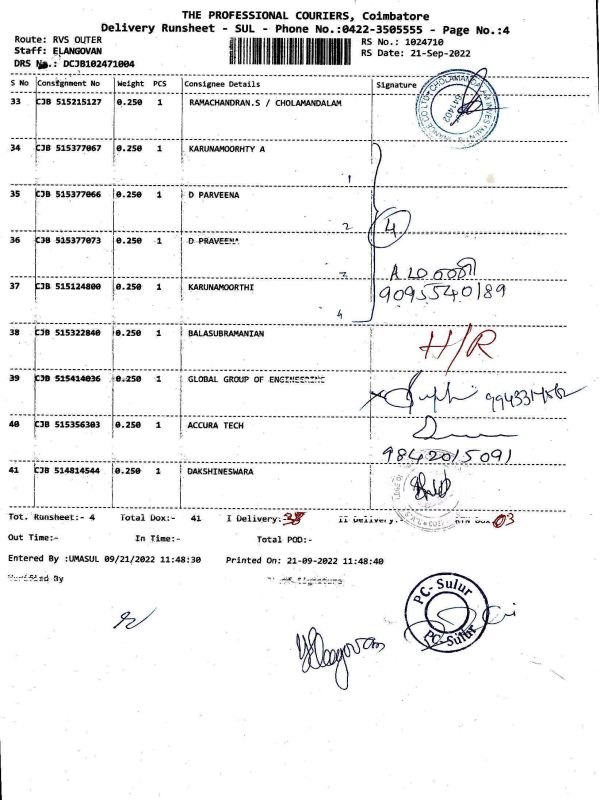 THE PROFESSIONAL COURIERS, Coimbatore
Delivery Runsheet - SUL - Phone No.:0422-3505555 - Page No.:4
Route: RVS OUTER
RS No.: 1024710
Staff: ELANGOVAN
RS Date: 21-Sep-2022
DRS No.: DCJB102471004
S No Consignment No Weight PCS Consignee Details Signature
33 CJB 515215127 0.250 1 RAMACHANDRAN.S / CHOLAMANDALAM
34 CJB 515377067 0.250 1 KARUNAMOORHTY A
1
35 CJB 515377066 0.250 1 D PARVEENA
2 4
36 CJB 515377073 0.250 1 D PRAVEENA
3 அமராவதி
37 CJB 515124800 0.250 1 KARUNAMOORTHI
9095540189
4
38 CJB 515322840 0.250 1 BALASUBRAMANIAN
H/R
39 CJB 515414036 0.250 1 GLOBAL GROUP OF ENGINEERING
40 CJB 515356303 0.250 1 ACCURA TECH
9842015091
41 CJB 514814544 0.250 1 DAKSHINESWARA
Tot. Runsheet:- 4 Total Dox:- 41 I Delivery:- 38 II Delivery:- RTN Dox 03
Out Time:- In Time:- Total POD:-
Entered By :UMASUL 09/21/2022 11:48:30 Printed On: 21-09-2022 11:48:40
Verified By Signature
PC-Sulur
PC-Sulur